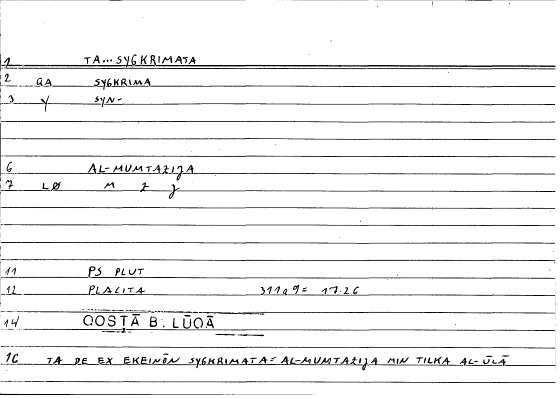 1 TA... SYGKRIMATA
2 QA SYGKRIMA
3 Y SYN-
6 AL-MUMTAZIJA
7 LØ M Z J
11 PS PLUT
12 PLACITA 311a9= 17.26
14 QOSṬĀ B. LŪQĀ
16 TA DE EX EKEINŌN SYGKRIMATA= AL-MUMTAZIJA MIN TILKA AL-ŪLĀ